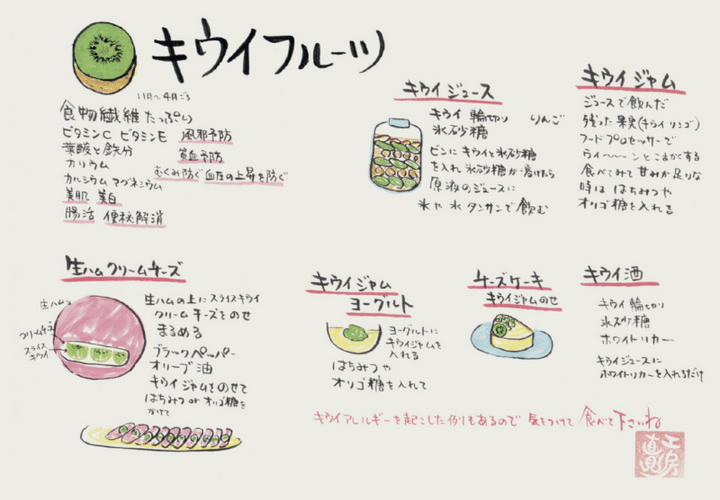 キウイフルーツ
11月〜4月ごろ
食物繊維たっぷり
ビタミンC ビタミンE 風邪予防
葉酸と鉄分 貧血予防
カリウム むくみ防ぐ 血圧の上昇を防ぐ
カルシウム マグネシウム
美肌 美白
腸活 便秘解消
キウイジュース
キウイ 輪切り りんご
氷砂糖
ビンにキウイと氷砂糖
を入れ 氷砂糖が溶けたら
原液のジュースに
氷や水 タンサンで飲む
キウイジャム
ジュースで飲んだ
残った果実(キウイ リンゴ)
フードプロセッサーで
ウィ〜〜ンとこまかくする
食べてみて 甘みが足りな
時は はちみつや
オリゴ糖を入れる
生ハムクリームチーズ
生ハム
クリームチーズ
スライス
キウイ
生ハムの上に スライスキウイ
クリームチーズをのせ
まるめる
ブラックペーパー
オリーブ油
キウイジャムをのせて
はちみつorオリゴ糖を
かけて
キウイジャム
ヨーグルト
ヨーグルトに
キウイジャムを
入れる
はちみつや
オリゴ糖を入れて
チーズケーキ
キウイジャムのせ
キウイ酒
キウイ輪切り
氷砂糖
ホワイトリカー
キウイジュースに
ホワイトリカーを入れるだけ
キウイアレルギーを起こした例もあるので 気をつけて 食べて下さいね
工房
直